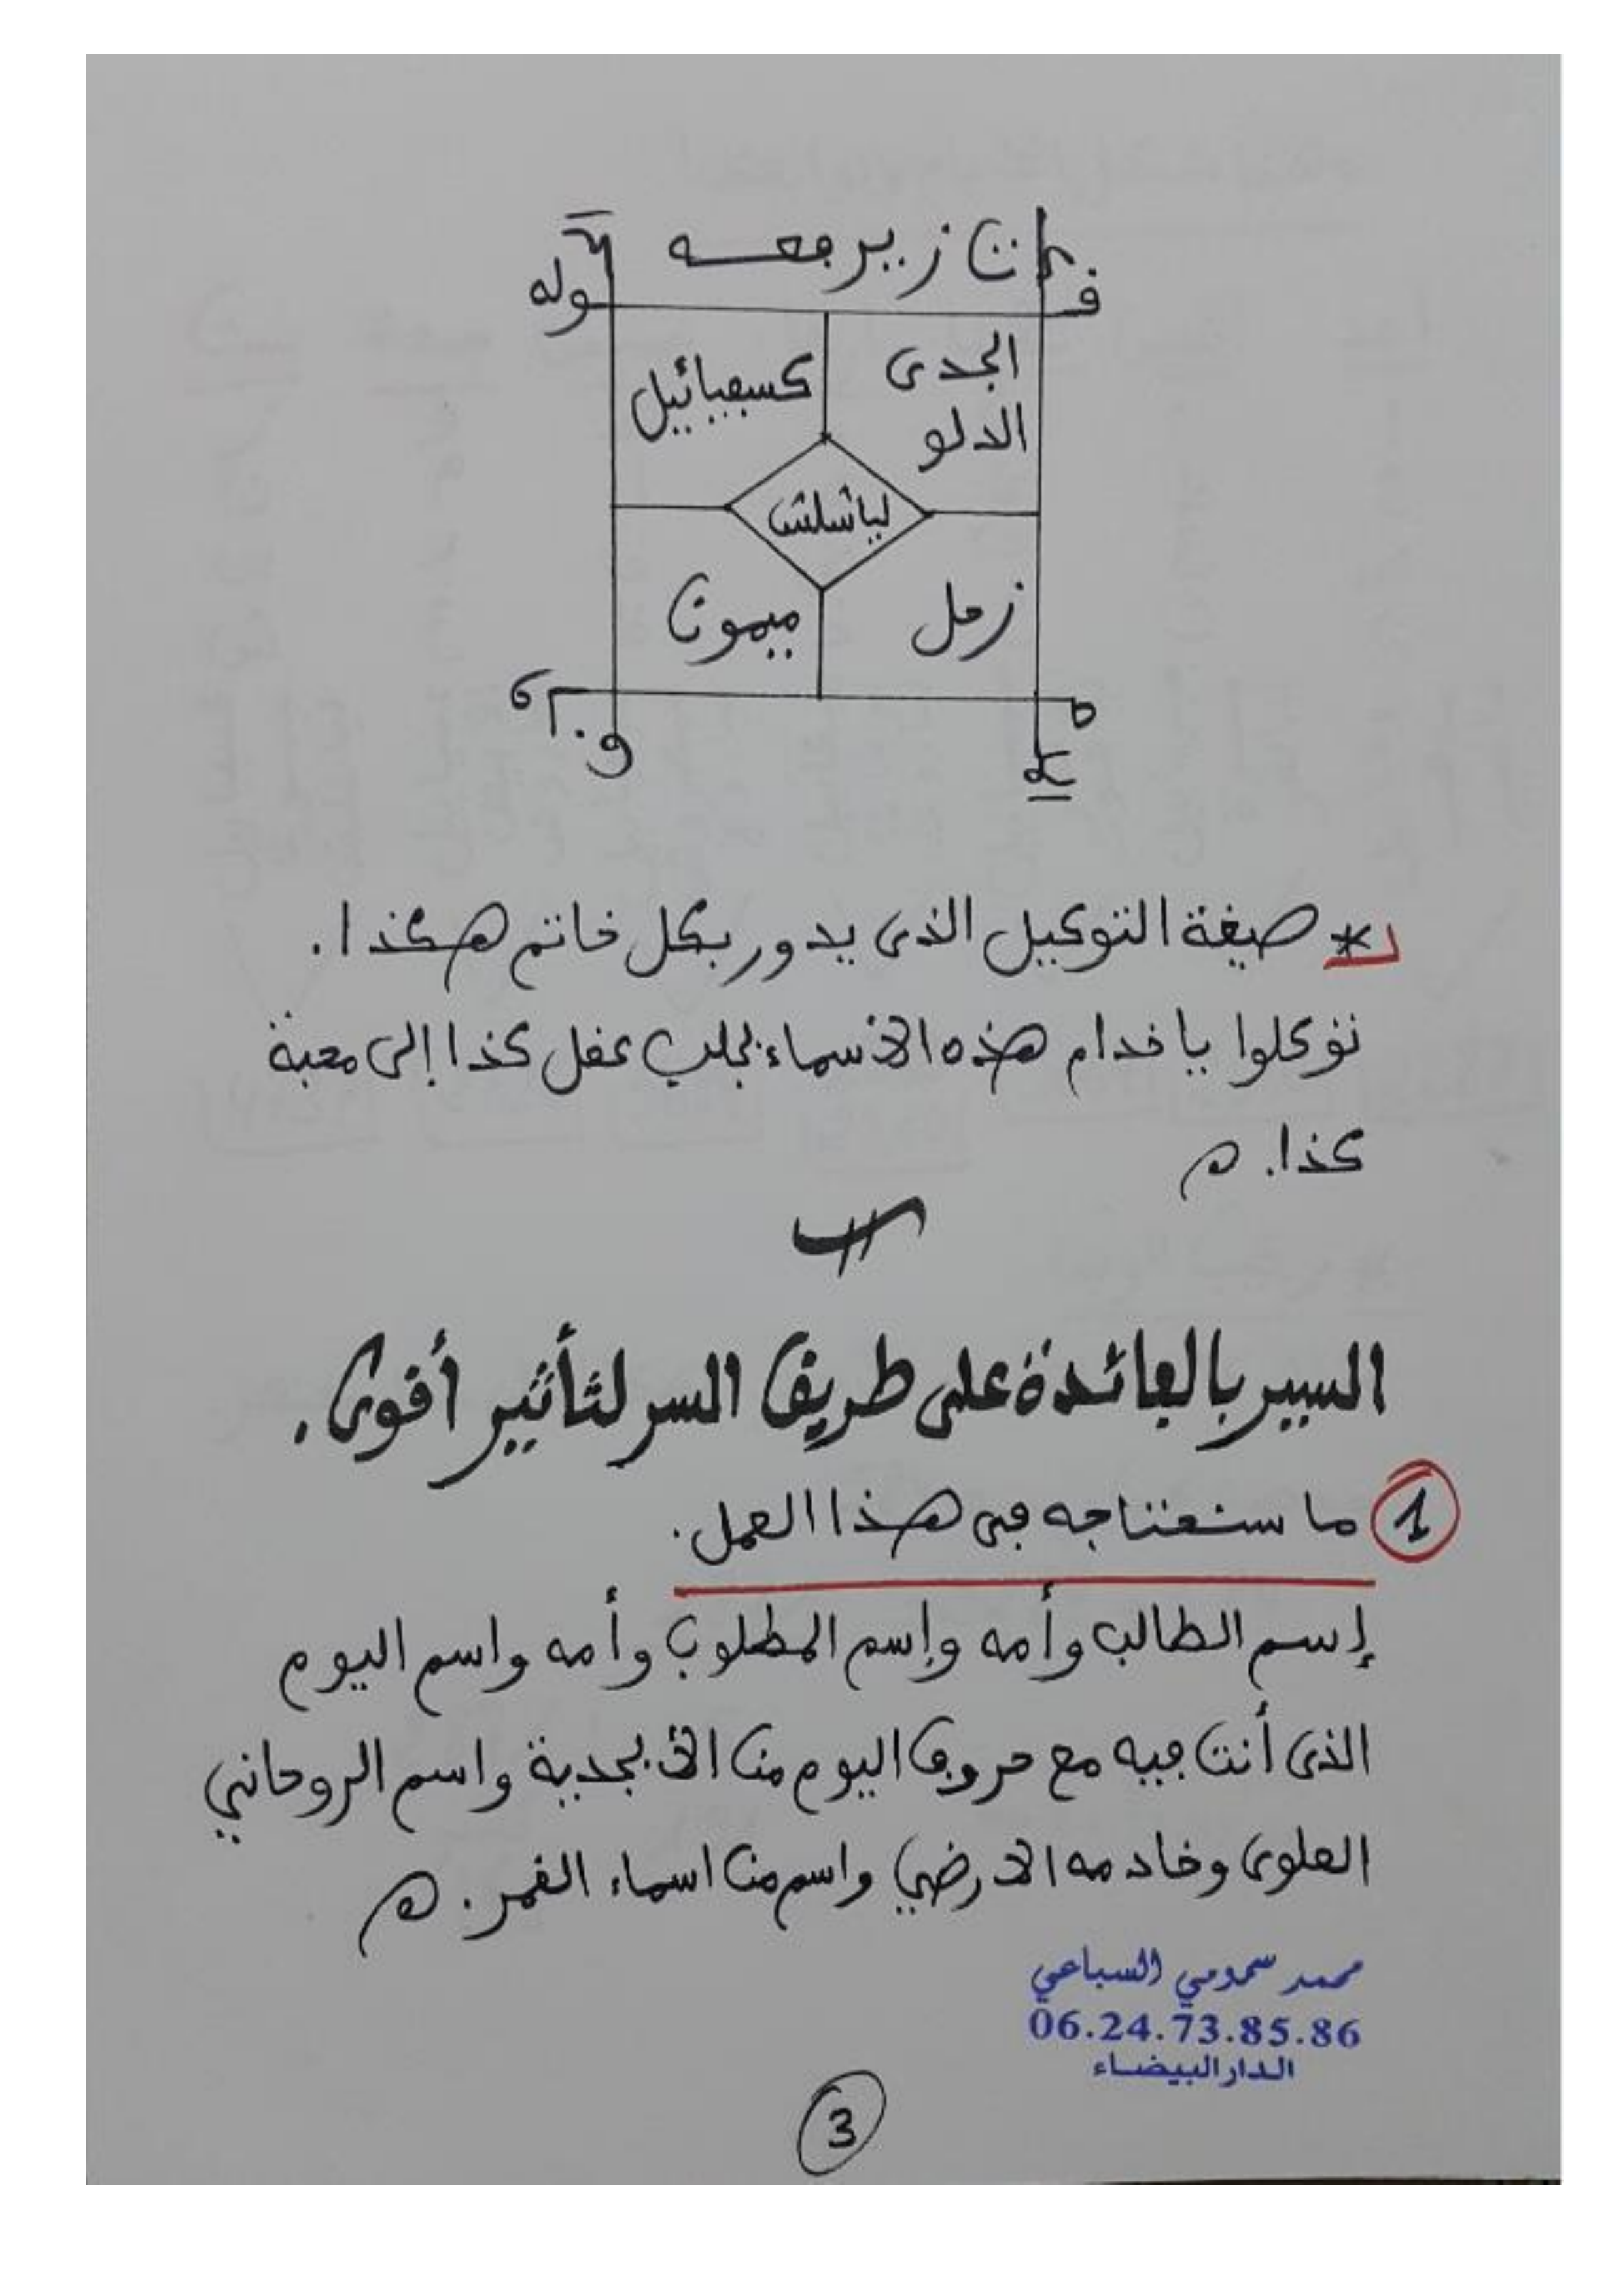 الجدي كسفيائيل
الدلو
لياشلش
زحل ميمون
* صيغة التوكيل الذي يدور بكل خاتم هكذا.
توكلوا يا خدام هذه الأسماء بجلب عقل كذا إلى محبة
كذا. ه
السير بالفائدة على طريق السر لتأثير أقوى.
1 ما سنحتاجه في هذا العمل.
إسم الطالب وأمه وإسم المطلوب وأمه واسم اليوم
الذي أنت فيه مع حروف اليوم من الأبجدية واسم الروحاني
العلوي وخادمه الارضي واسم من اسماء القمر. ه
محمد سمومي السباعي
06.24.73.85.86
الدار البيضاء
3